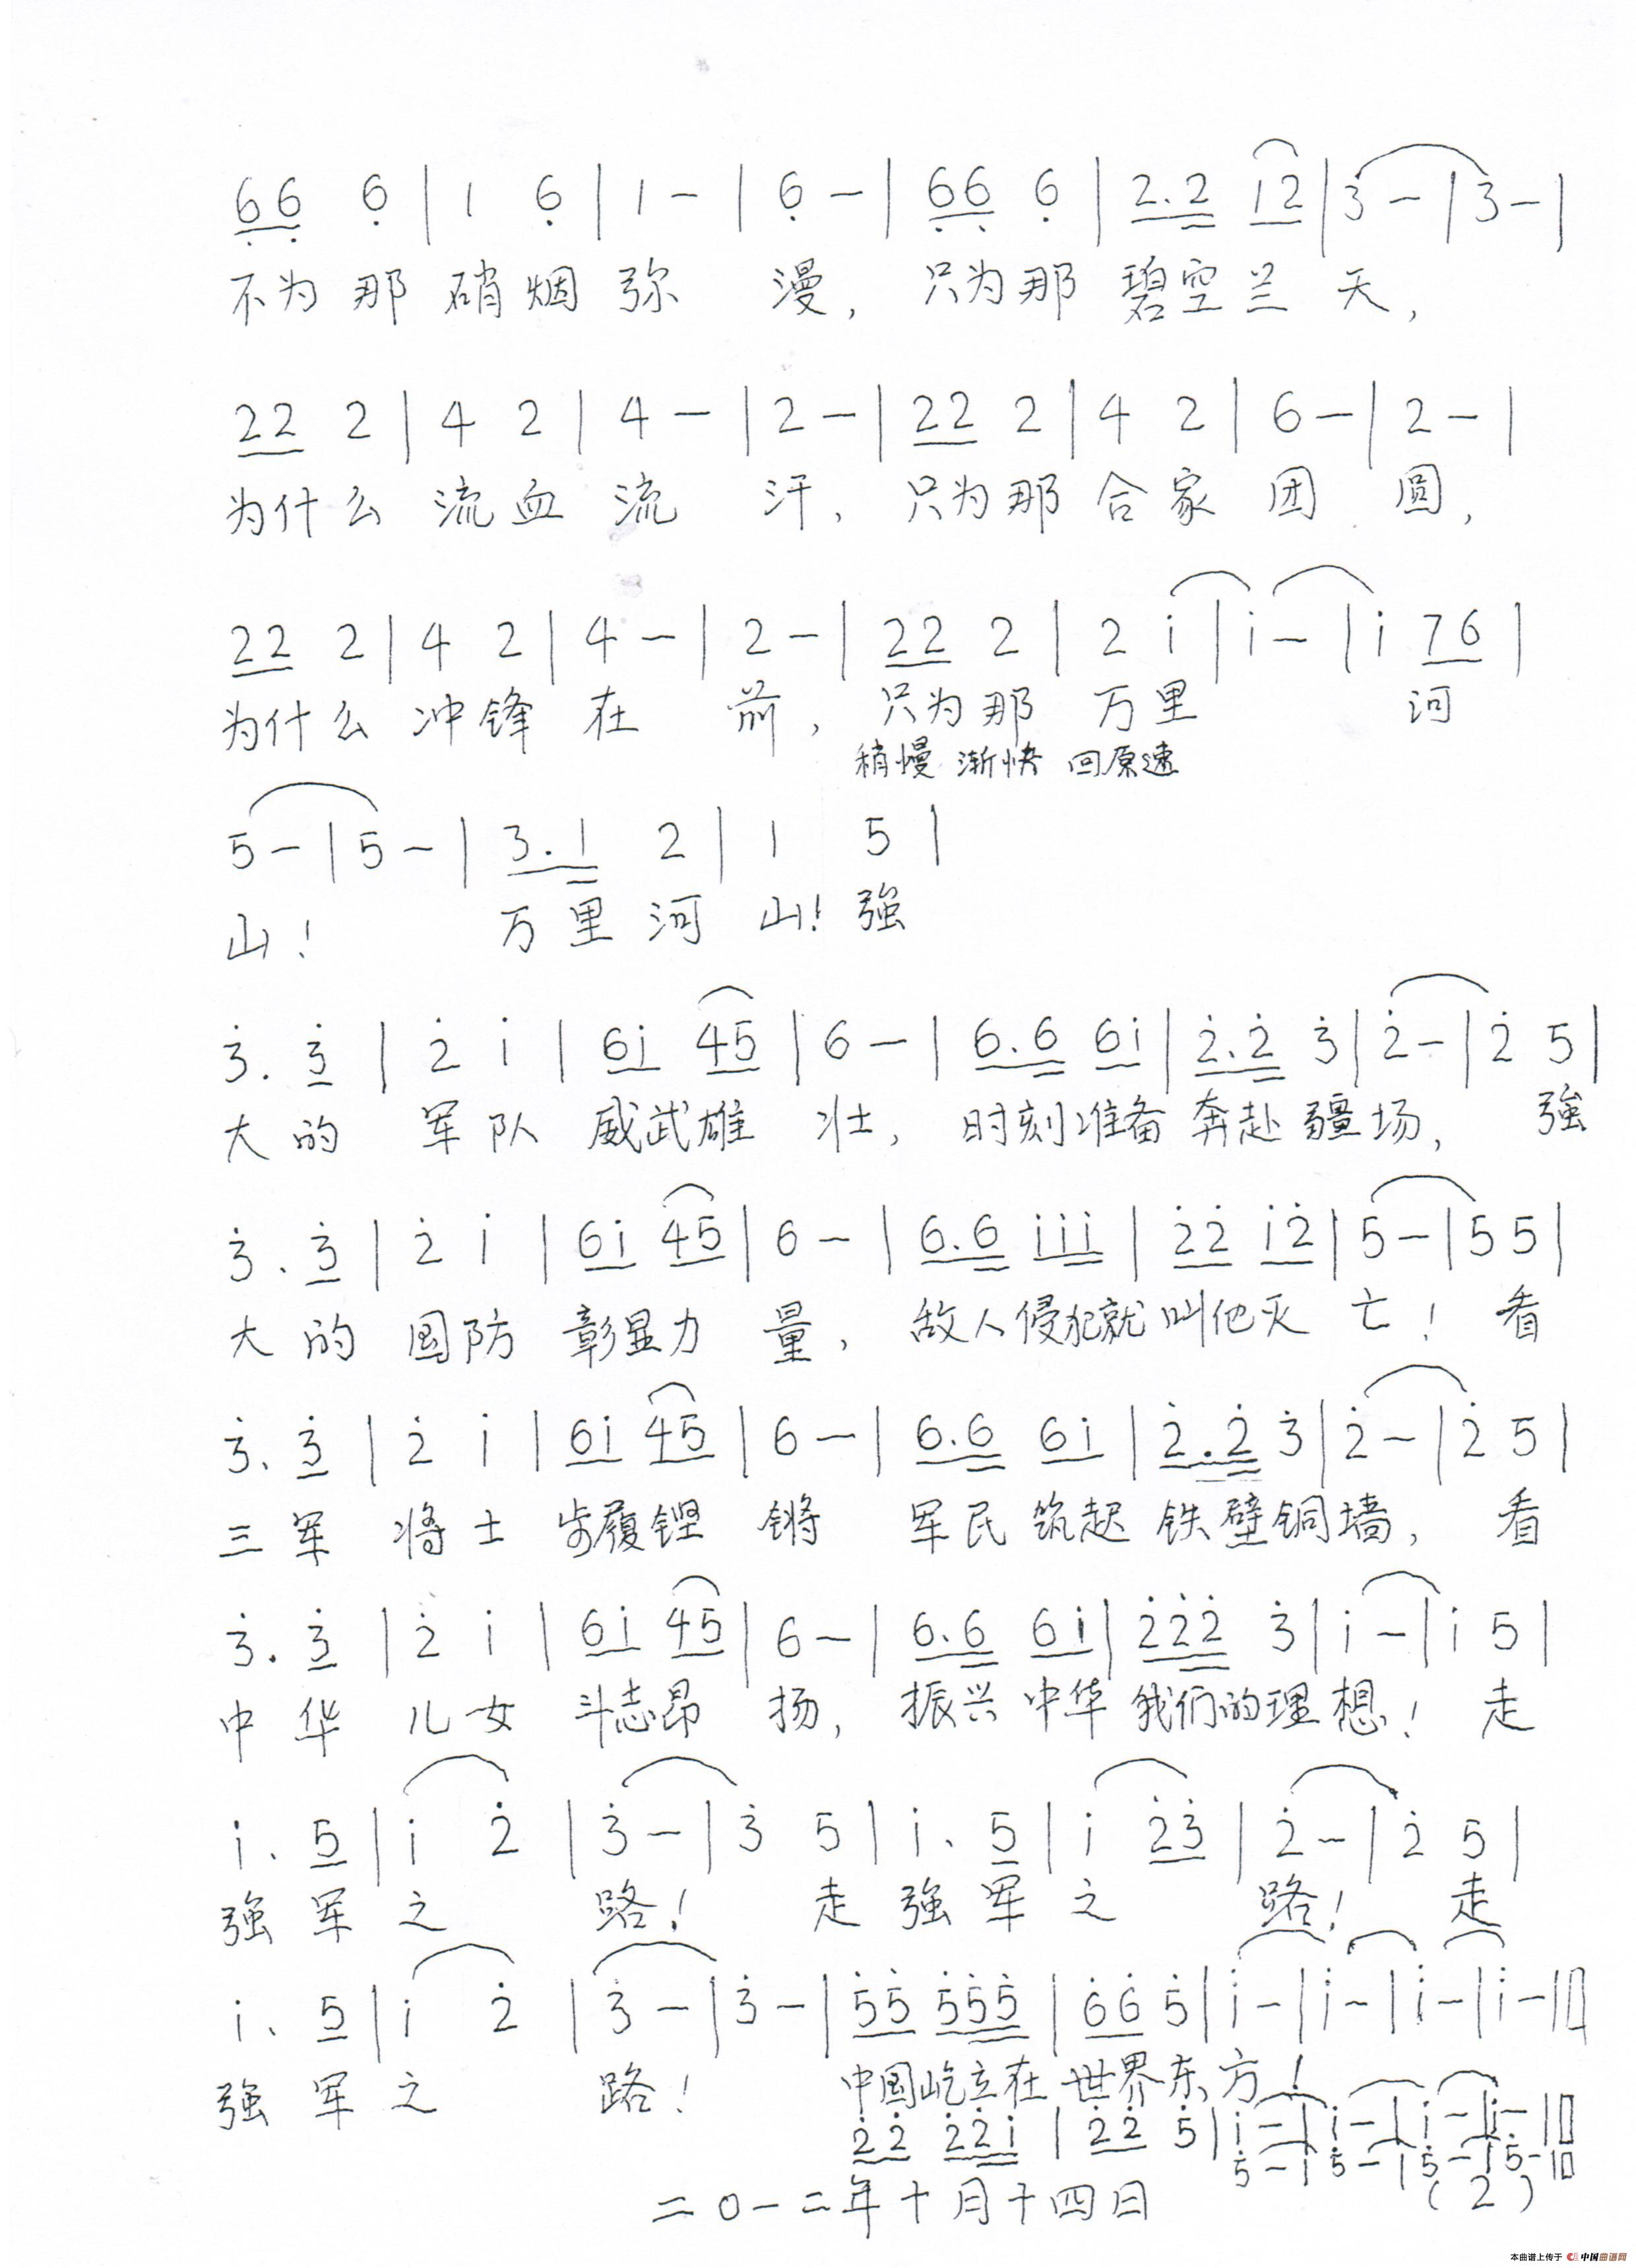 6 6 6 | 1 6 | 1 - | 6 - | 6 6 6 | 2. 2 1 2 | 3 - | 3 - |
不为那硝烟弥漫，只为那碧空兰天，
2 2 2 | 4 2 | 4 - | 2 - | 2 2 2 | 4 2 | 6 - | 2 - |
为什么流血流汗，只为那合家团圆，
2 2 2 | 4 2 | 4 - | 2 - | 2 2 2 | 2 i | i - | i 7 6 |
为什么冲锋在前，只为那万里河
稍慢 渐快 回原速
5 - | 5 - | 3. 1 2 | 1 5 |
山！万里河山！強
3. 3 | 2 i | 6 i 4 5 | 6 - | 6. 6 6 i | 2. 2 3 | 2 - | 2 5 |
大的军队威武雄壮，时刻准备奔赴疆场，強
3. 3 | 2 i | 6 i 4 5 | 6 - | 6. 6 i i i | 2 2 i 2 | 5 - | 5 5 |
大的国防彰显力量，敌人侵犯就叫他灭亡！看
3. 3 | 2 i | 6 i 4 5 | 6 - | 6. 6 6 i | 2. 2 3 | 2 - | 2 5 |
三军将士步履铿锵 军民筑起铁壁铜墙，看
3. 3 | 2 i | 6 i 4 5 | 6 - | 6. 6 6 i | 2 2 2 3 | i - | i 5 |
中华儿女斗志昂扬，振兴中华我们的理想！走
i. 5 | i 2 | 3 - | 3 5 | i. 5 | i 2 3 | 2 - | 2 5 |
強军之路！走強军之路！走
i. 5 | i 2 | 3 - | 3 - | 5 5 5 5 5 | 6 6 5 | i - | i - | i - | i - ‖
強军之路！中国屹立在世界东方！
2 2 2 2 i | 2 2 5 | i - | i - | i - | i - ‖
5 - | 5 - | 5 - | 5 - ‖
二〇一二年十月十四日
(2)
本曲谱上传于 中国曲谱网